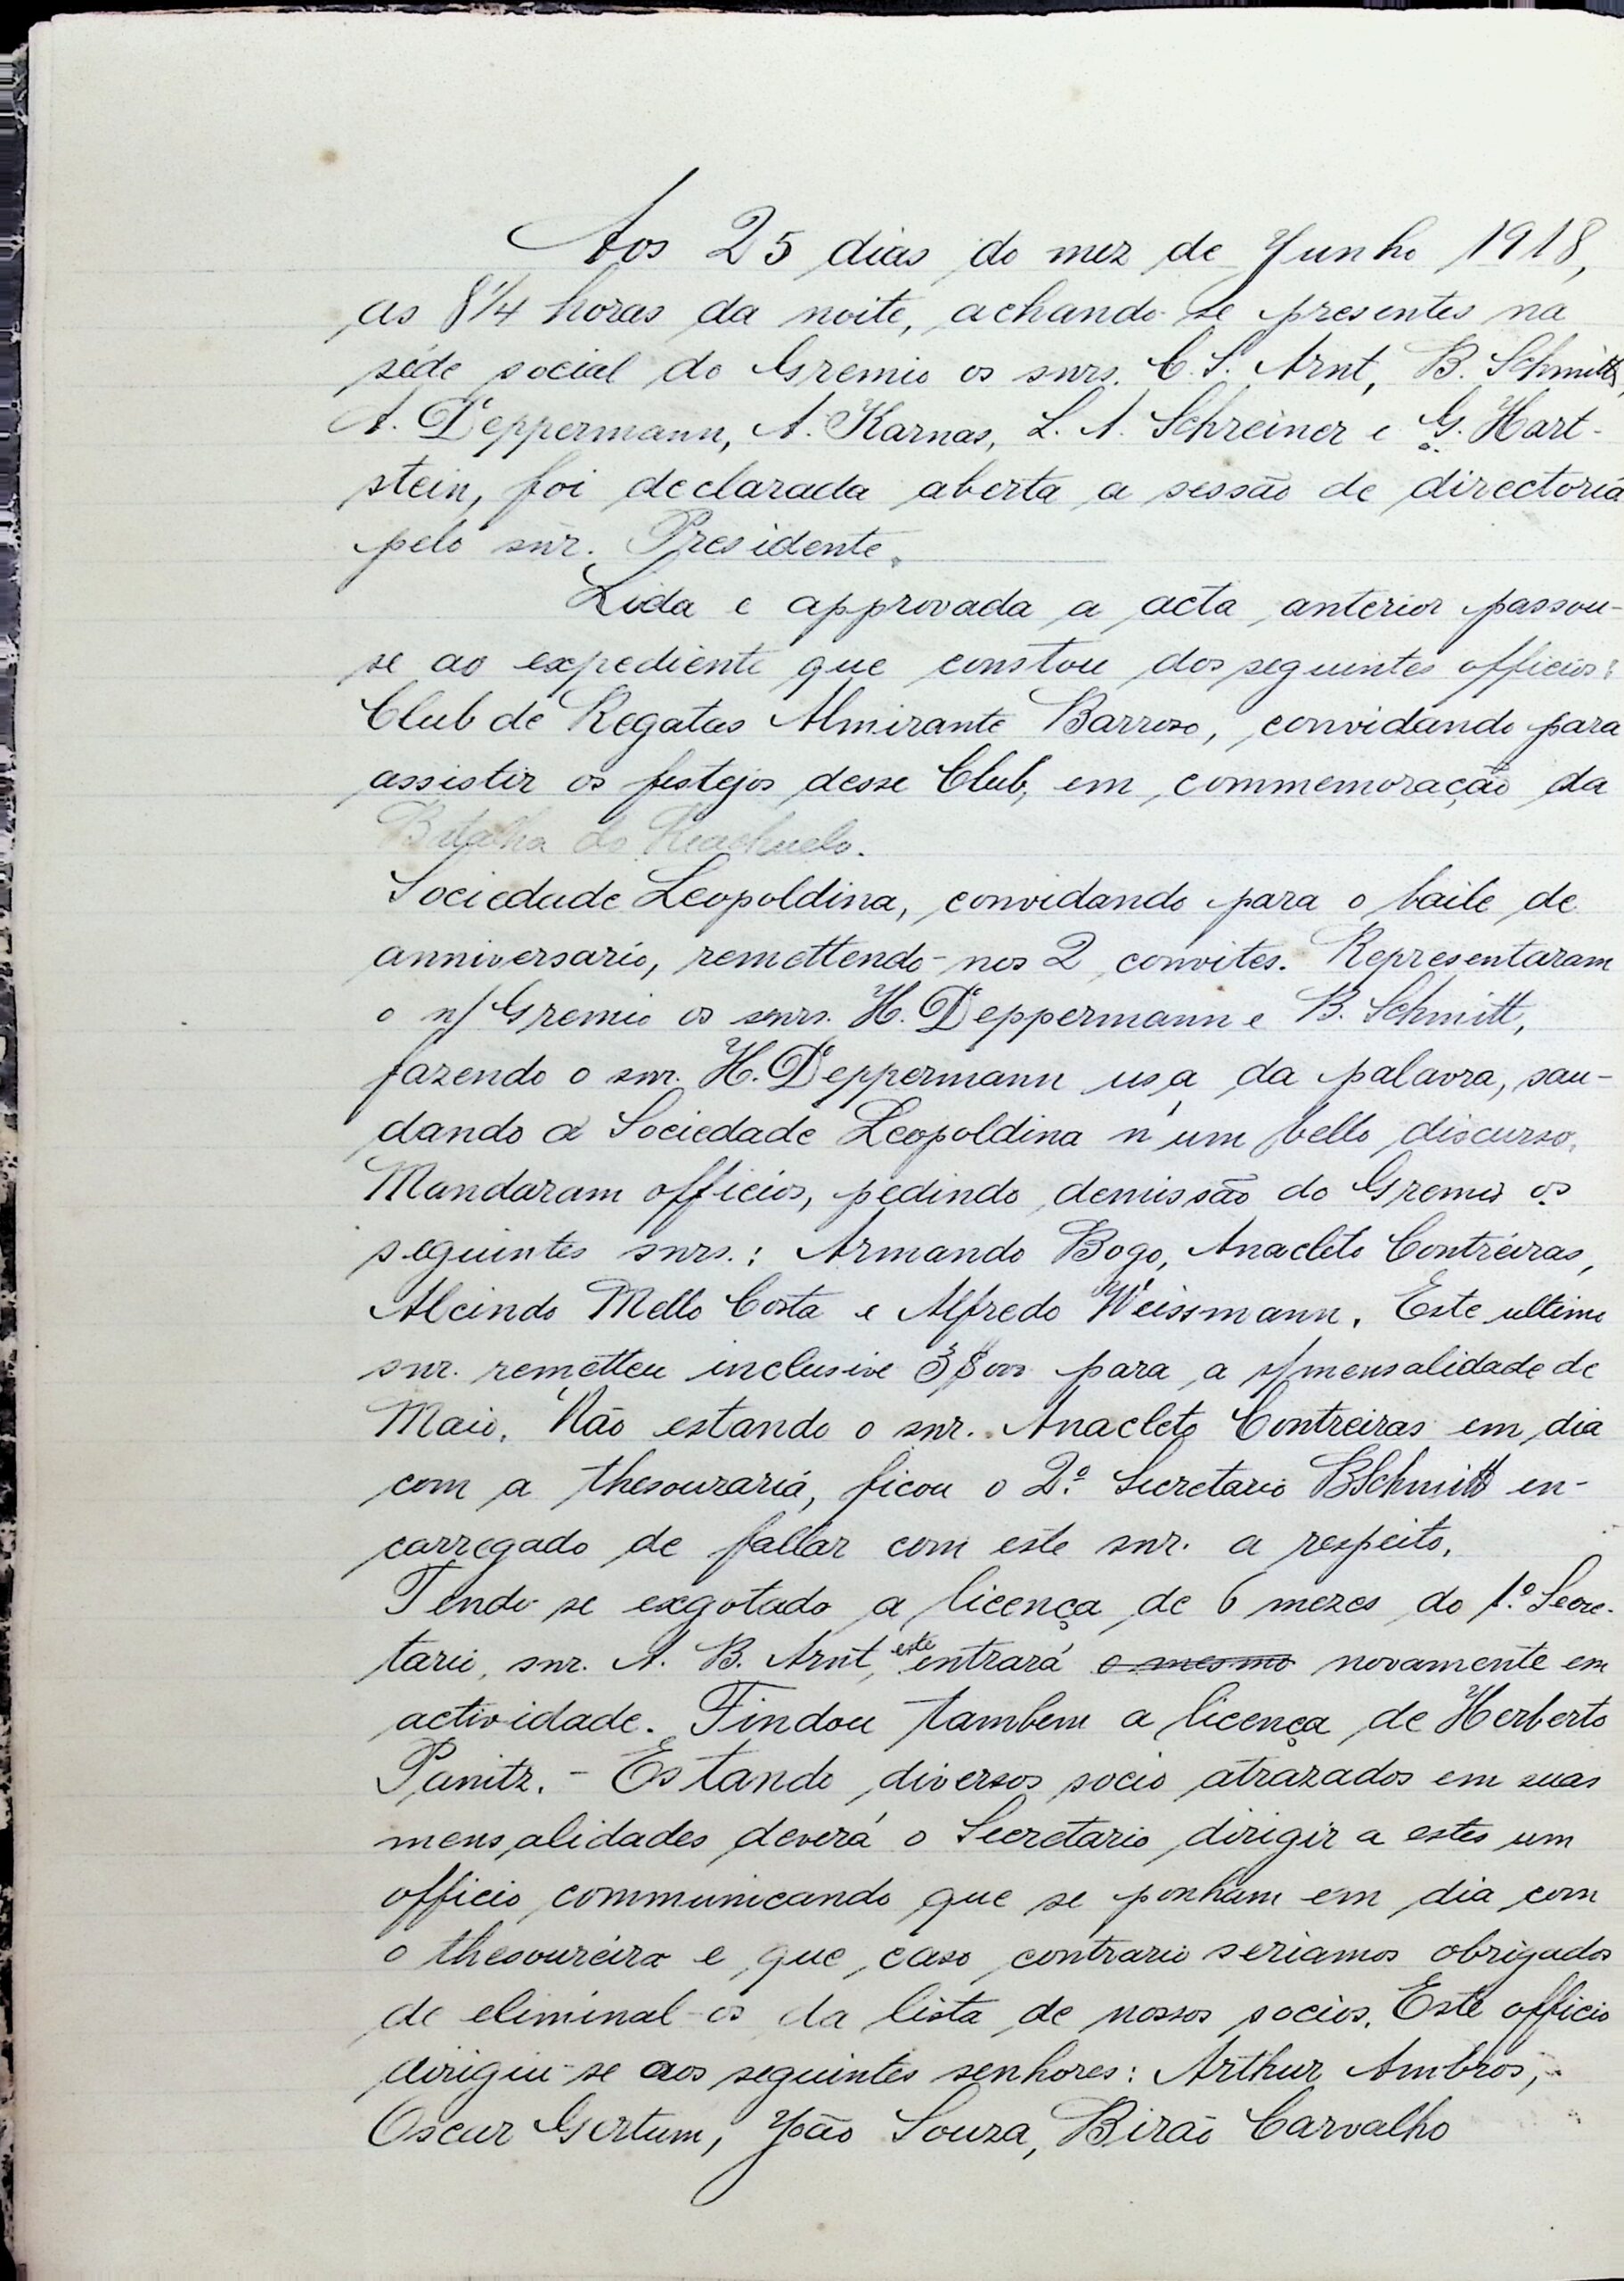 Aos 25 dias do mez de Junho 1918,
as 8 1/4 horas da noite, achando-se presentes na
séde social do Gremio os snrs. C. S. Arnt, B. Schmitt,
A. Deppermann, A. Karnas, L. A. Schreiner e G. Hart-
stein, foi declarada aberta a sessão de directoria
pelo snr. Presidente.
Lida e approvada a acta anterior passou-
se ao expediente que constou dos seguintes officios:
Club de Regatas Almirante Barroso, convidando para
assistir os festejos desse Club, em commemoração da
Batalha do Reachuelo.
Sociedade Leopoldina, convidando para o baile de
anniversario, remettendo-nos 2 convites. Representaram
o n/ Gremio os snrs. H. Deppermann e B. Schmitt,
fazendo o snr. H. Deppermann usa da palavra, sau-
dando a Sociedade Leopoldina n'um bello discurso.
Mandaram officios, pedindo demissão do Gremio os
seguintes snrs.: Armando Bogo, Anacleto Contreiras,
Alcindo Mello Costa e Alfredo Weissmann. Este ultimo
snr. remetteu inclusive 3$000 para a s/mensalidade de
Maio. Não estando o snr. Anacleto Contreiras em dia
com a thesouraria, ficou o 2º Secretario BSchmitt en-
carregado de fallar com este snr. a respeito.
Tendo-se exgotado a licença de 6 mezes do 1º Secre-
tario, snr. A. B. Arnt, este entrará o mesmo novamente em
actividade. Findou tambem a licença de Herberto
Panitz. - Estando diversos socio atrazados em suas
mensalidades deverá o Secretario dirigir a estes um
officio communicando que se ponham em dia com
o thesoureiro e que caso contrario seriamos obrigados
de eliminal-os da lista de nossos socios. Este officio
dirigiu-se aos seguintes senhores: Arthur Ambros,
Oscar Gertum, João Souza, Birão Carvalho